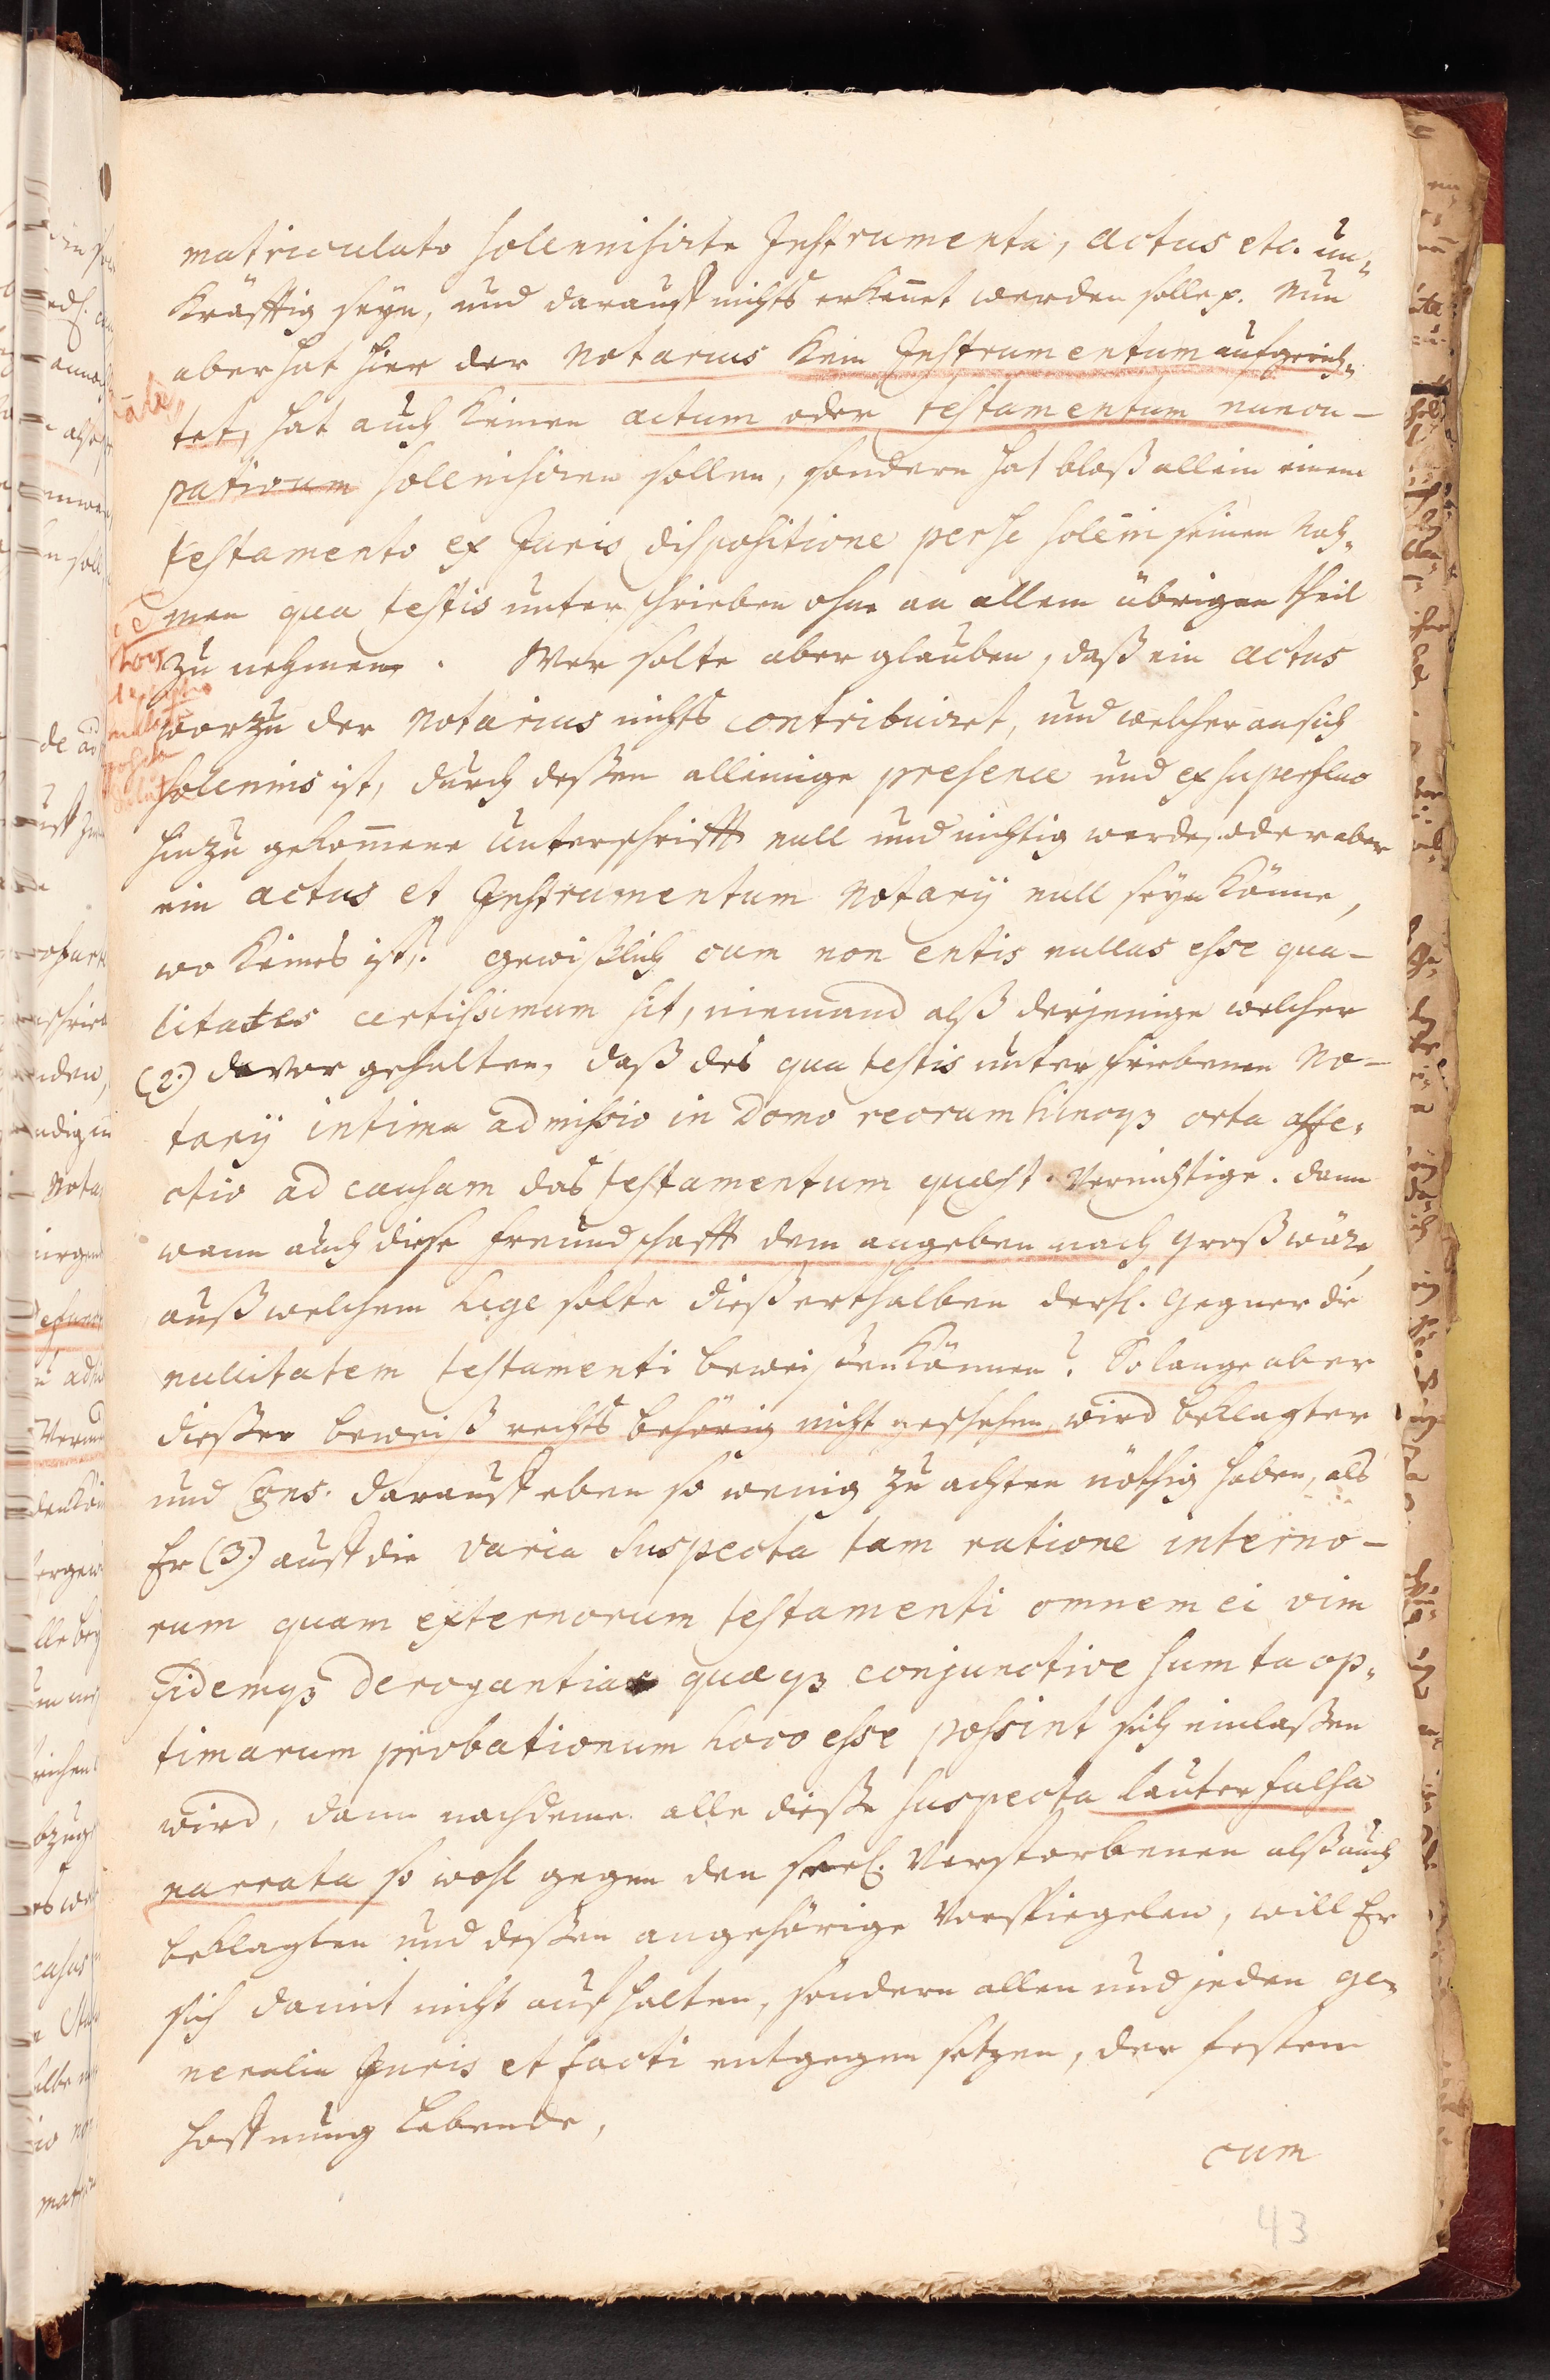 matriculato solennisirte Instrumenta, actus etc. un-
kräfftig seyn, und darauff nichts erkeñet werden solle p. Nun
aber hat hier der Notarius kein Instrumentum aufgerich-
tet, hat auch keinen actum oder testamentum nuncu-
pativum sollenisiren sollen, sondern hat bloß allein einem
testamento ex Juris dispositione per se solem̃i seinen Nah-
men qua testis unterschrieben ohne an allem übrigen theil
zu nehmen. Wer solte aber glauben, daß ein actus
worzu der Notarius nichts contribuiret, und welcher an sich
solennis ist, durch deßen alleinige presence und ex superfluo
hinzu gekom̃ene Unterschrifft null und nichtig werde, oder aber
ein actus et Instrumentum Notarij null seyn könne,
wo keines ist? gewißlich cum non entis nullas esse qua-
litates certissimum sit, niemand alß derjenige welcher
(2.) davor gehalten, daß des qua testis unterschriebenen No-
tarij intima admissio in domo reorum hincq3 orta affe-
ctio ad causam das testamentum quæst. vernichtige. dann
wann auch diese freundschafft dem angeben nach groß wäre,
auß welchem Lege solte dießerthalben ders. Gegner die
nullitatem testamenti beweisen können? So lange aber
dießer beweiß rechts behörig nicht geschehen, wird beklagter
und Cons. darauff eben so wenig zu achten nöthig haben, als
Er (3.) auff die varia suspecta tam ratione interno-
rum quam externorum testamenti omnem ei vim
fidemq3 derogantia quæq3 conjunctive sumta op-
timarum probationum loco esse possint sich einlaßen
wird, dann nachdeme alle dieße suspecta lauter falsa
narrata so wohl gegen den seel. Verstorbenen alß auch
beklagten und deßen angehörige vorspiegelen, will Er
sich damit nicht auffhalten, sondern allen und jeden ge-
neralia Juris et facti entgegen setzen, der festen
hoffnung lebende,
cum
43